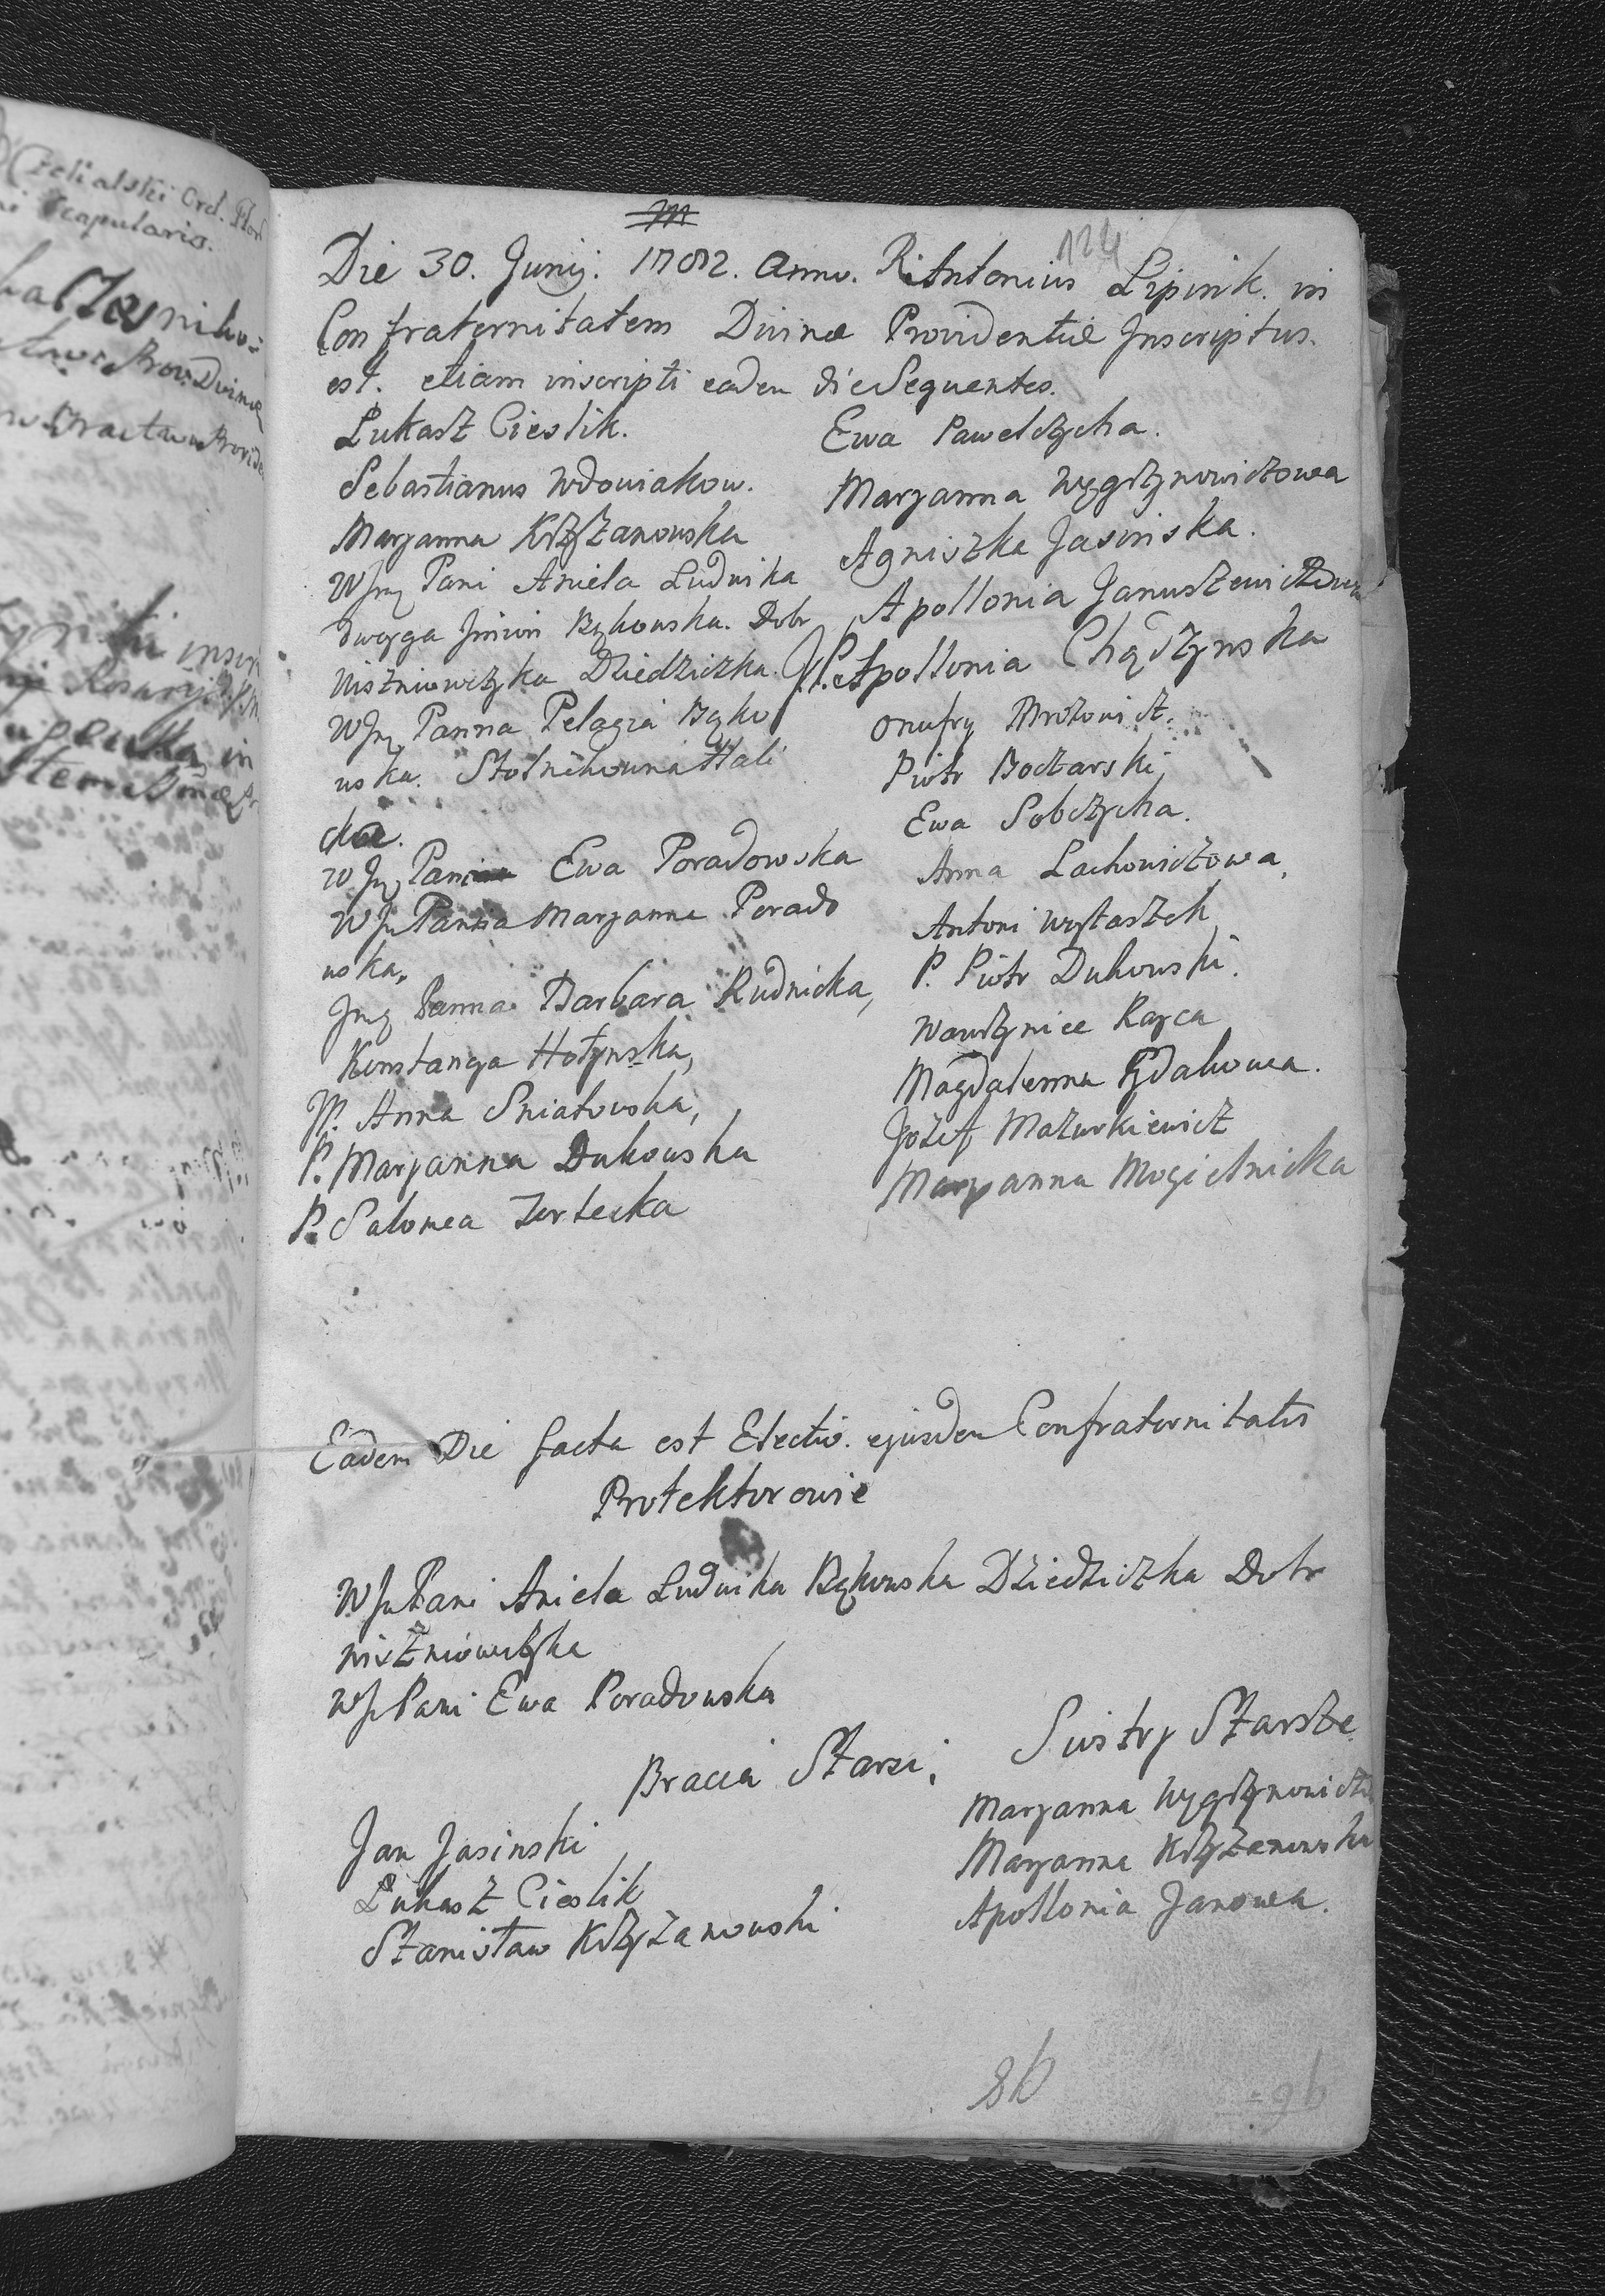 124
Die 30. Junij. 1782. Anno. R. Antonius Lipinik. in
Confraternitatem Divinæ Providentiæ Inscriptus.
est. etiam inscripti eadem die Sequentes.
Łukasz Cieslik.
Sebastianus Wdowiakow.
Maryanna Krzyzanowska
WJmę Pani Aniela Ludwika
dwoyga Jmion Bykowska. Dobr
Niszniowczyka Dziedziczka.
WJmę Panna Pelagia Byko
wska. Stolnikowna Hali
cka.
WJmę Pani Ewa Poradowska
WJm Panna Maryanna Porado
wska.
Jmę Panna Barbara Rudnicka,
Konstancya Hołynska,
P. Anna Sniatowska,
P. Maryanna Dukowska
P. Salomea
Ewa Pawelczycha.
Maryanna Węgrzynowiczowa
Agniszka Jasinska.
Apollonia Januszewiczowa
P. Apollonia Chądzynska
Onufry Mrozowicz.
Piotr Boczarski
Ewa Sobczycha.
Anna Lachowiczowa,
Antoni Wytaszek
P. Piotr Dukowski.
Wawrzyniec Rayca
Magdalenna Rydakowa.
Jozef Mazurkiewicz
Maryanna Mogielnicka
Eadem Die facta est Electio. ejusdem Confraternitatis
Protektorowie
WJm Pani Aniela Ludwika Bykowska Dziedziczka Dobr
Niszniowczyka
WJ Pani Ewa Poradowska
Bracia Starsi,
Jan Jasinski
Łukasz Cieslik
Stanisław Krzyzanowski
Siostry Starsze
Maryanna Węgrzynowicz
Maryanna Krzyzanowska
Apollonia Janowa.
86
96